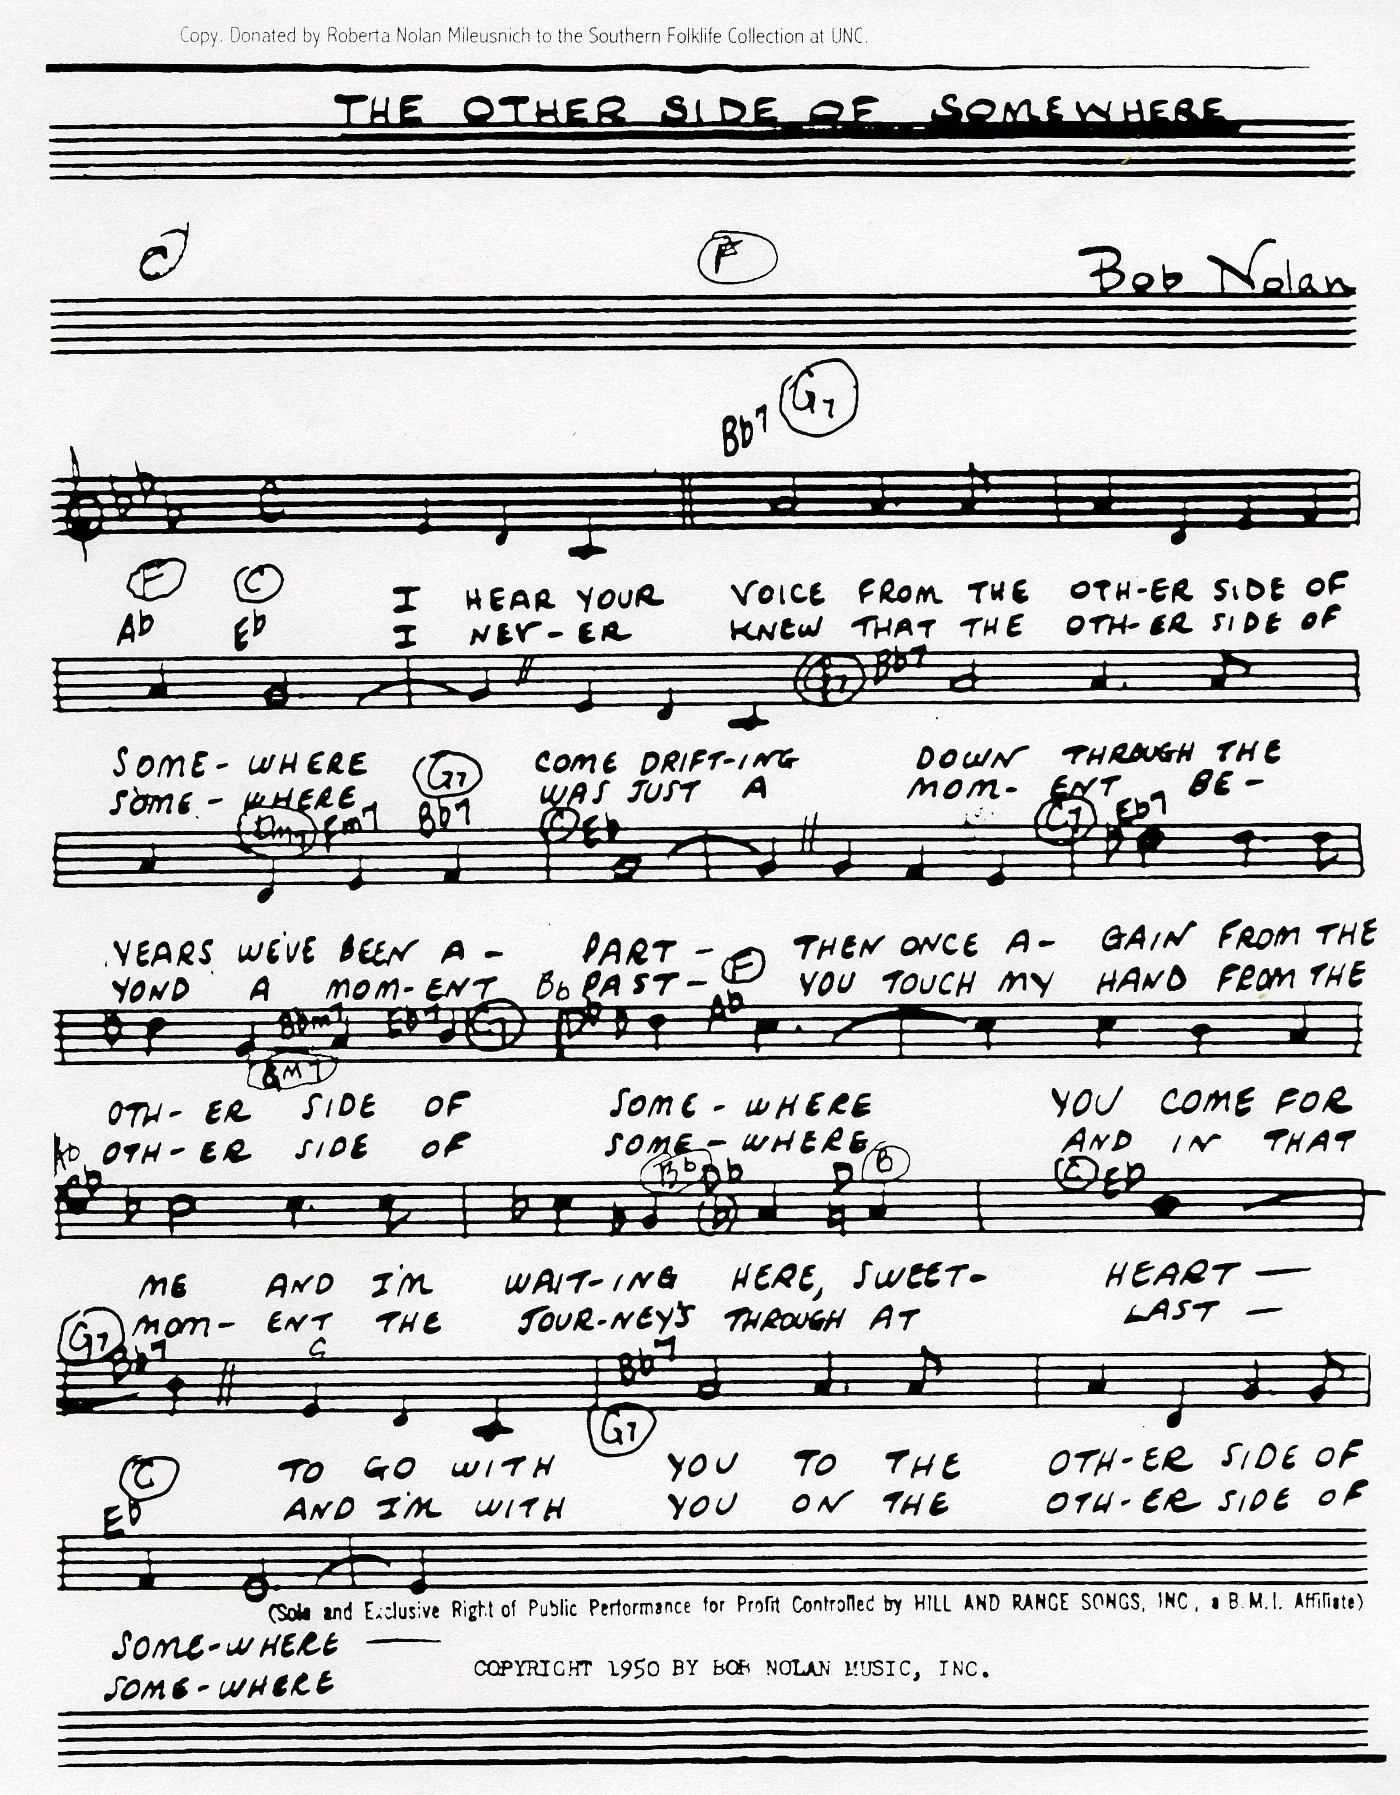 Copy. Donated by Roberta Nolan Mileusnich to the Southern Folklife Collection at UNC.
THE OTHER SIDE OF SOMEWHERE
C F Bob Nolan
Bb7 G7
F C I HEAR YOUR VOICE FROM THE OTH-ER SIDE OF
Ab Eb I NEV-ER KNEW THAT THE OTH-ER SIDE OF
G7 Bb7
SOME-WHERE COME DRIFT-ING DOWN THROUGH THE
G7
SOME-WHERE WAS JUST A MOM-ENT BE-
Dm7 Fm7 Bb7 C Eb C7 Eb7
YEARS WE'VE BEEN A-PART- THEN ONCE A-GAIN FROM THE
YOND A MOM-ENT Bb PAST- F YOU TOUCH MY HAND FROM THE
Bbm7 Eb7 C7 Db Ab
GM7
OTH-ER SIDE OF SOME-WHERE YOU COME FOR
Ab OTH-ER SIDE OF SOME-WHERE AND IN THAT
Bb Db D B C Eb
ME AND I'M WAIT-ING HERE, SWEET-HEART —
G7 MOM-ENT THE JOUR-NEY'S THROUGH AT LAST —
Bb7 G Bb7
G7
C TO GO WITH YOU TO THE OTH-ER SIDE OF
Eb AND I'M WITH YOU ON THE OTH-ER SIDE OF
(Sole and Exclusive Right of Public Performance for Profit Controlled by HILL AND RANGE SONGS, INC, a B.M.I. Affiliate)
SOME-WHERE —
COPYRIGHT 1950 BY BOB NOLAN MUSIC, INC.
SOME-WHERE